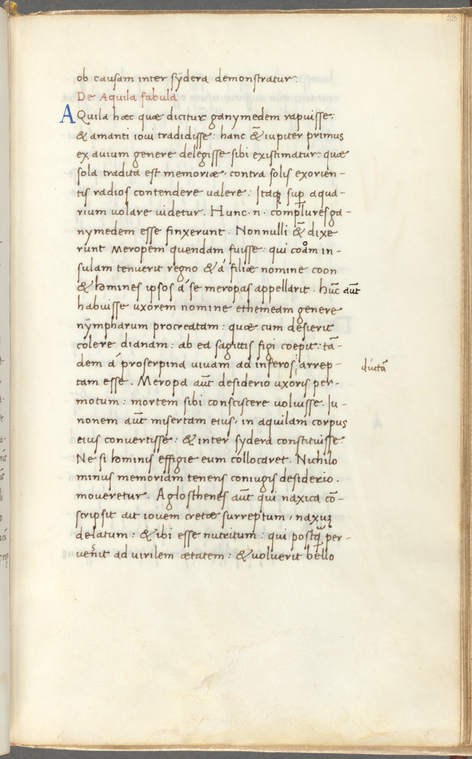 ob causam inter sydera demonstratur.
De Aquila fabula
AQuila hæc quæ dicitur ganymedem rapuisse:
& amanti ioui tradidisse: hanc & iupiter primus
ex auium genere delegisse sibi existimatur: quæ
sola tradita est memoriæ, contra solis exorien-
tis radios contendere ualere: Itaq sup aqua-
rium uolare uidetur. Hunc .n. compluresga-
nymedem esse finxerunt. Nonnulli & dixe
runt Meropem quendam fuisse: qui coam in-
sulam tenuerit regno & a filiæ nomine coon
& homines ipsos a se meropas appellarit. hūc aūt
habuisse uxorem nomine ethemeam genere
nympharum procreatam: quæ cum desierit
colere dianam: ab ea sagittis figi coepit: tā-
dem a proserpina uiuam ad inferos arrep-
ductā
tam esse. Meropa aūt desiderio uxoris per-
motum: mortem sibi consciscere uoluisse. Iu-
nonem aūt misertam eius, in aquilam corpus
eius conuertisse: & inter sydera constituisse
Ne si hominis effigie eum collocaret. Nichilo
minus memoriam tenens coniugis desiderio.
moueretur. Aglosthenes aūt qui naxica cō-
scripsit ait iouem cretæ surreptum, naxum
delatum: & ibi esse nutritum: qui postq per-
uenit ad uirilem ætatem: & uoluerit bello